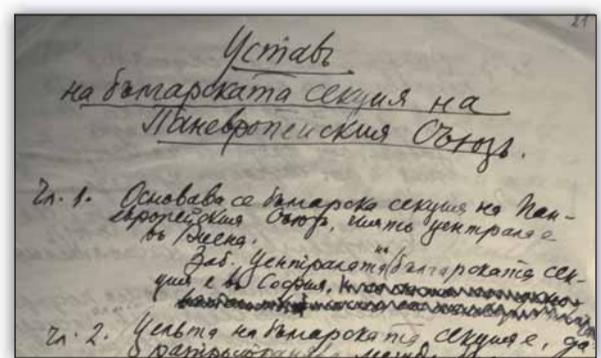 21
Уставъ
на българската секция на
Паневропейския Съюзъ.
Чл. 1. Основава се българска секция на Пан-
европейския Съюз, чиято централа е
въ Виена.
Заб. Централата на българската сек-
ция е въ София.
Чл. 2. Цельта на българската секция е, да